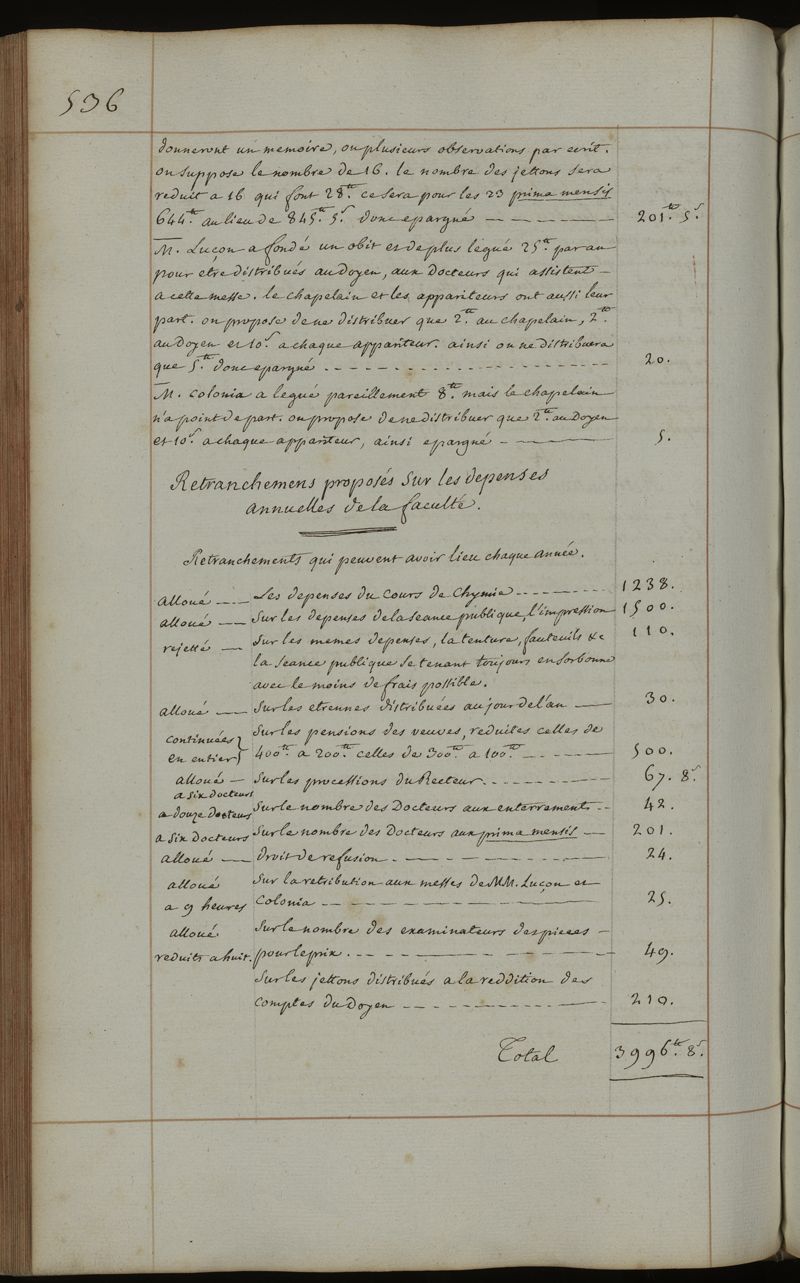 536
donneront un memoire, ou plusieurs observations par ecrit.
on suppose le nombre de 16. le nombre des jettons sera
reduit a 16 qui font 28.tt ce sera pour les 23 prima mensis
644.tt au lieu de 845.tt 5.s donc epargné — 201.tt 5.s
M. Luçon a fondé un obit et de plus legué 25.tt par an
pour etre distribués au Doyen, aux Docteurs qui assistent
a cette messe. le chapelain et les appariteurs ont aussi leur
part. on propose de ne distribuer que 2.tt au chapelain, 2.tt
au Doyen et 10.s a chaque appariteur. ainsi on ne distribuera
que 5.tt donc epargné - - - 20.
M. Colonia a legué pareillement 8.tt mais le chapelain
n'a point de part. on propose de ne distribuer que 2.tt au Doyen
et 10.s a chaque appariteur, ainsi epargné — 5.
Retranchemens proposés sur les depenses
annuelles de la faculté.
Retranchements qui peuvent avoir lieu chaque année.
alloué — Les depenses du cours de Chymie — 1238.
alloué — Sur les depenses de la seance publique, l'impression 1500.
rejetté — Sur les memes depenses, la tenture, fauteuils &c 110.
la seance publique se tenant toujours en Sorbonne
avec le moins de frais possible.
alloué — Sur les etrennes distribuées au jour de l'an — 30.
continuées Sur les pensions des veuves, reduites celles de
en entier} 400.tt a 200.tt celles de 300.tt a 100.tt — 500.
alloué — Sur les processions du Recteur. — 67. 8.s
a six docteurs
a douze docteurs Sur le nombre des Docteurs aux enterrements - - 42.
a six Docteurs Sur le nombre des Docteurs aux prima mensis — 201.
alloué — Droit de refusion. — 24.
alloué Sur la retribution aux messes de MM. Luçon et
a 9 heures Colonia — 25.
alloué Sur le nombre des examinateurs des pieces
reduits a huit. pour le prix. — 49.
Sur les jettons distribués a la reddition des
comptes du Doyen — 210.
Total 3996.tt 8.s